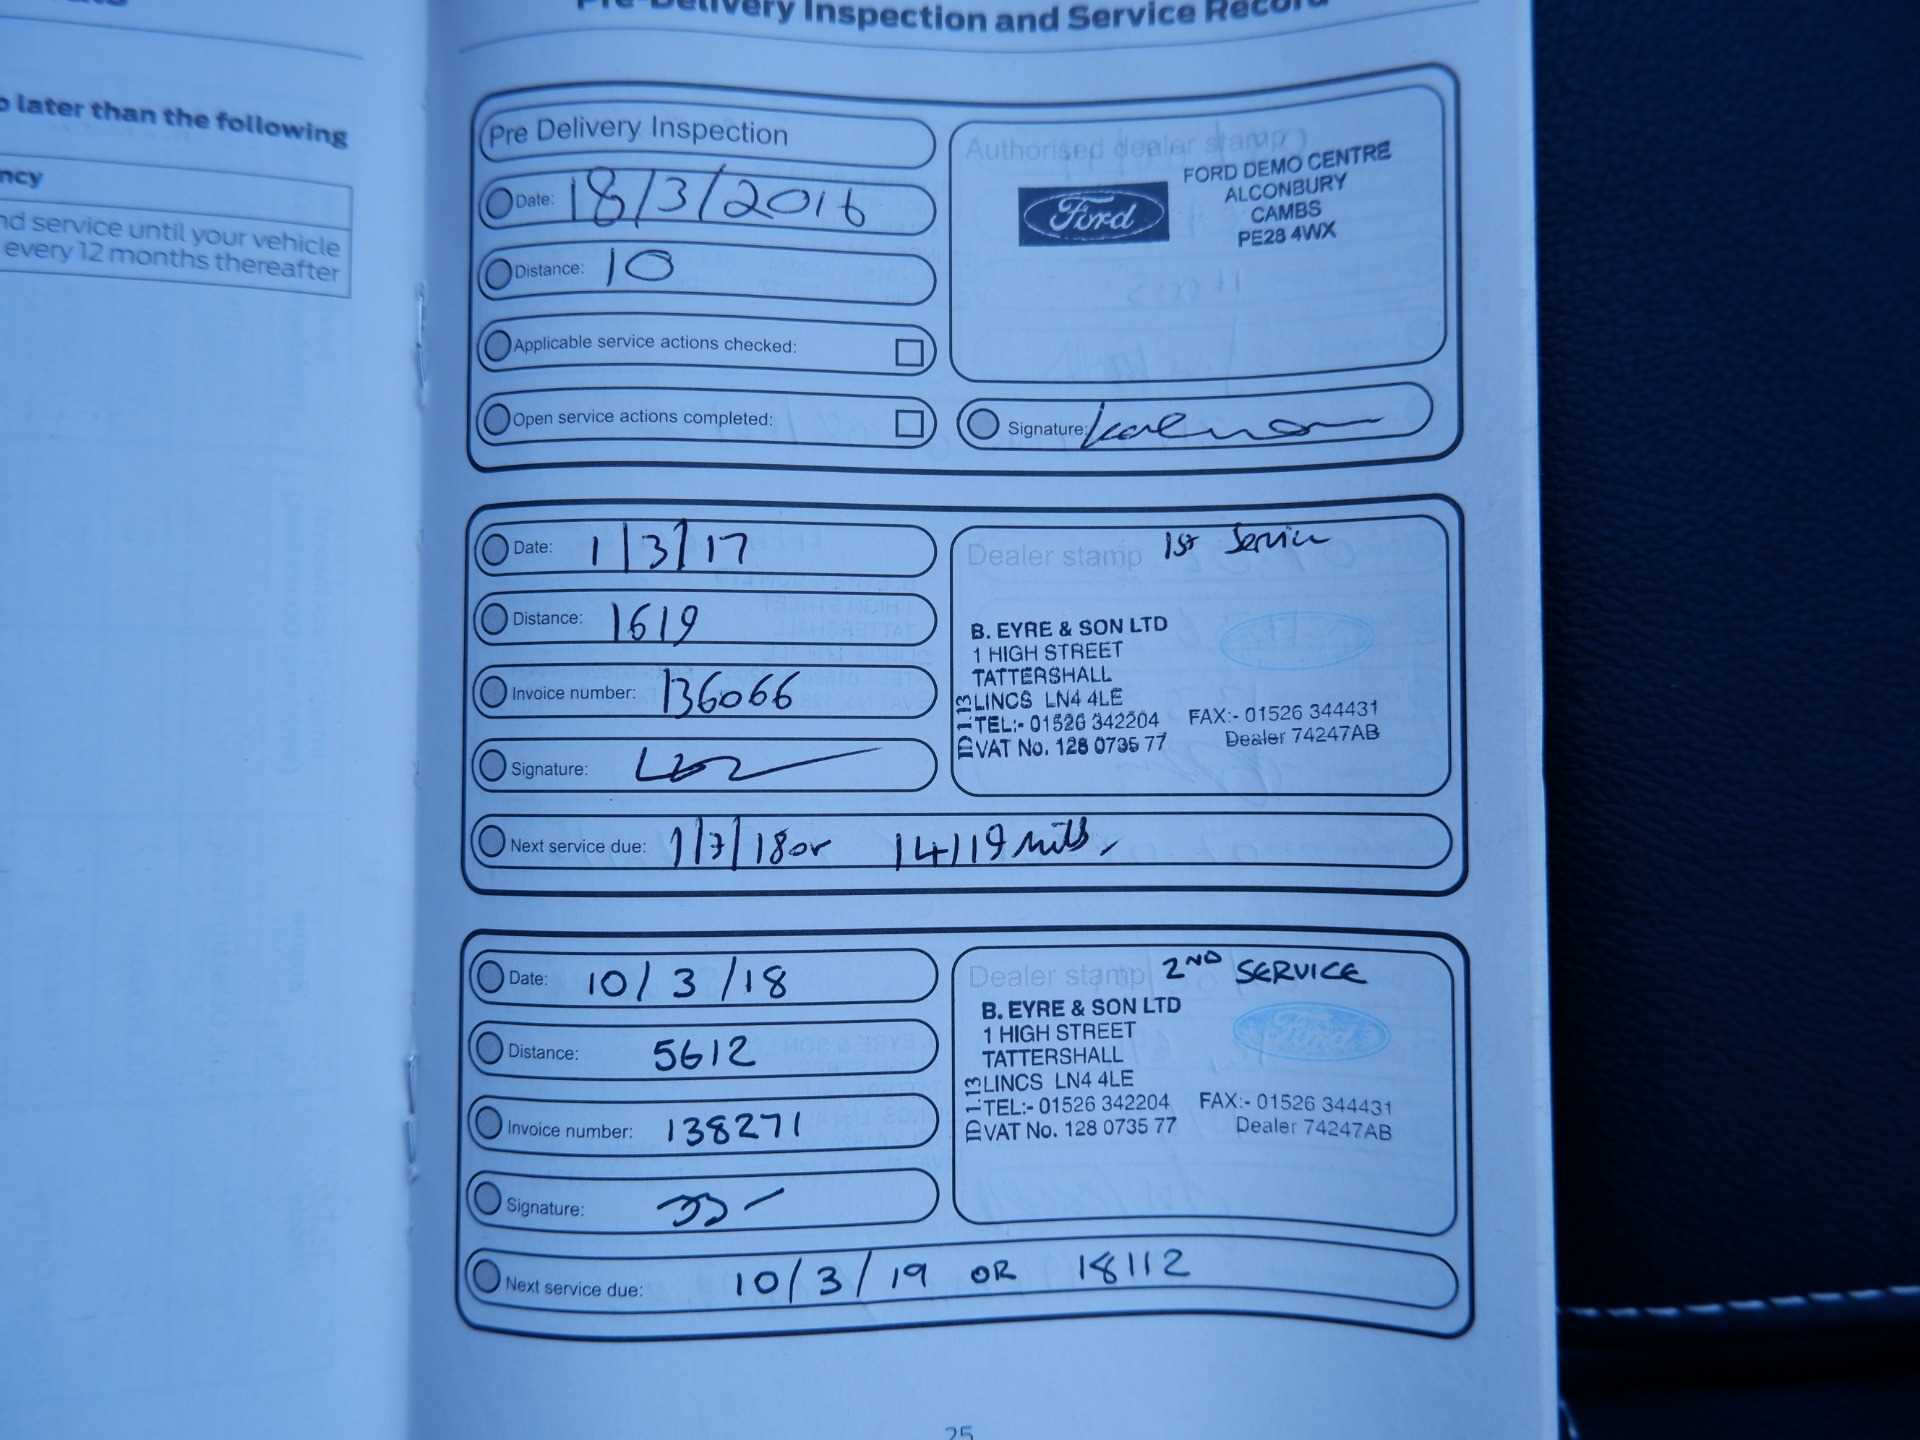 Pre-Delivery Inspection and Service Record
later than the following
ncy
nd service until your vehicle
every 12 months thereafter
Pre Delivery Inspection
Date: 18/3/2016
Distance: 10
Applicable service actions checked:
Open service actions completed:
Authorised dealer stamp
Ford
FORD DEMO CENTRE
ALCONBURY
CAMBS
PE28 4WX
Signature:
Date: 1/3/17
Distance: 1619
Invoice number: 136066
Signature:
Dealer stamp 1st Service
B. EYRE & SON LTD
1 HIGH STREET
TATTERSHALL
LINCS LN4 4LE
TEL:- 01526 342204 FAX:- 01526 344431
VAT No. 128 0735 77 Dealer 74247AB
ID 1.13
Next service due: 1/3/18 or 14119 miles
Date: 10/3/18
Distance: 5612
Invoice number: 138271
Signature:
Dealer stamp 2ND SERVICE
B. EYRE & SON LTD
1 HIGH STREET
TATTERSHALL
LINCS LN4 4LE
TEL:- 01526 342204 FAX:- 01526 344431
VAT No. 128 0735 77 Dealer 74247AB
ID 1.13
Ford
Next service due: 10/3/19 OR 18112
25